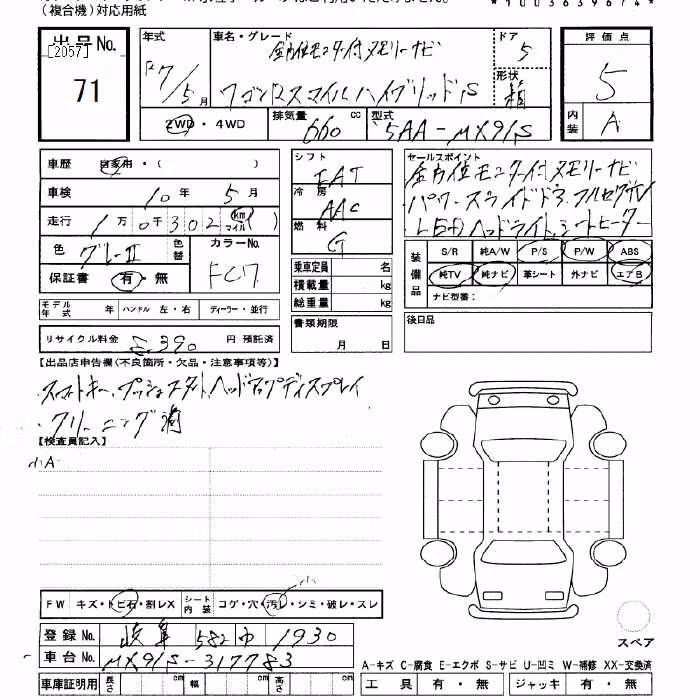 (複合機)対応用紙
*1003639674*
出品No. 年式 車名・グレード ドア 評価点
[2057]
全方位モニター付メモリーナビ 5
71 R7/5月 ワゴンRスマイルハイブリッドS 形状 箱 5
2WD・4WD 排気量 660 cc 型式 5AA-MX91S 内装 A
車歴 自家用・( )
車検 10年 5月
走行 1万0千302 km マイル ( )
色 グレーII 色替 カラーNo.
保証書 有・無 FC7
モデル年式 年 ハンドル 左・右 ディーラー・並行
リサイクル料金 円 預託済
シフト FAT
冷房 AAC
燃料 G
乗車定員 名
積載量 kg
総重量 kg
書類期限
月 日
セールスポイント
全方位モニター付メモリーナビ
パワースライドドア、フルセグTV
LEDヘッドライト、シートヒーター
装備品 S/R 純A/W P/S P/W ABS
純TV 純ナビ 革シート 外ナビ エアB
ナビ型番:
後日品
【出品店申告欄(不良箇所・欠品・注意事項等)】
スマートキー、プッシュスタート、ヘッドアップディスプレイ
クリーニング済
【検査員記入】
小A
FW キズ・トビ石・割レX シート内装 コゲ・穴・汚レ・シミ・破レ・スレ
小
登録No. 岐阜 582 1930
車台No. MX91S-317783
車庫証明用 長さ cm 幅 cm 高さ cm
スペア
A-キズ C-腐食 E-エクボ S-サビ U-凹ミ W-補修 XX-交換済
工具 有・無 ジャッキ 有・無